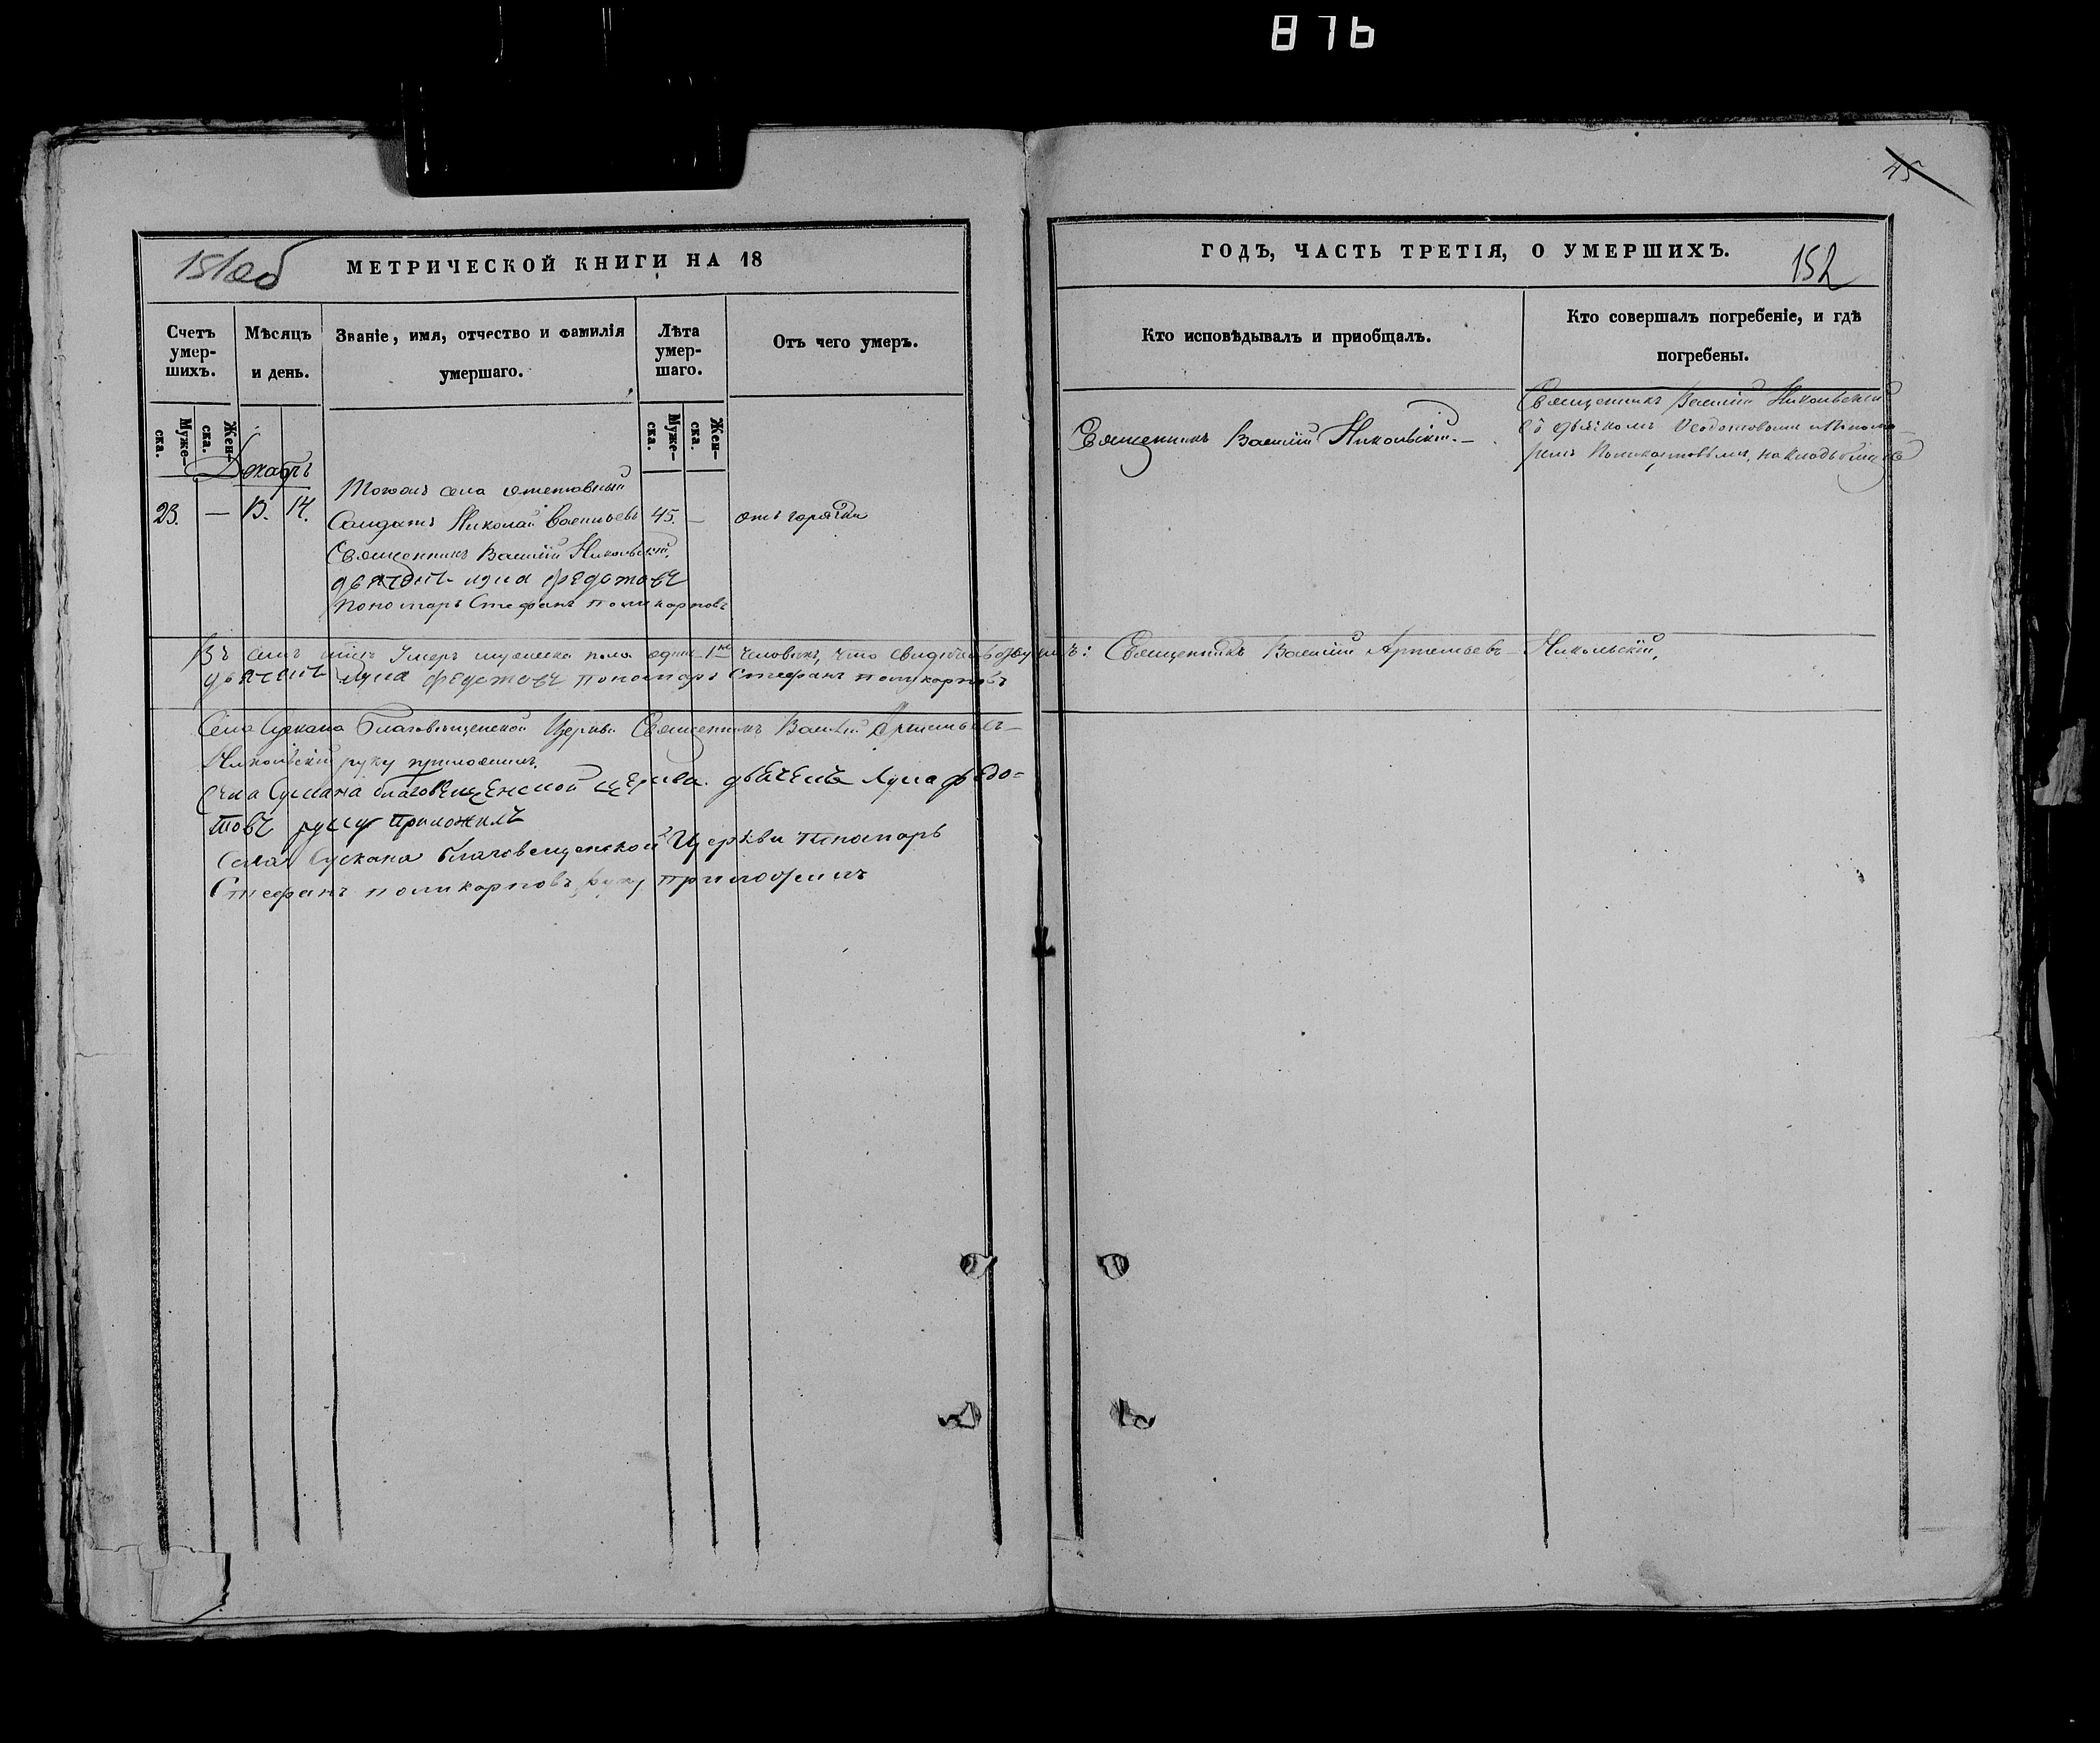 876
45
151об
МЕТРИЧЕСКОЙ КНИГИ НА 18
Счетъ умер-шихъ.
Мѣсяцъ и день.
Званіе, имя, отчество и фамилія умершаго.
Лѣта умер-шаго.
Отъ чего умеръ.
Муже-ска.
Жен-ска.
Муже-ска.
Жен-ска.
Декабрь
23. — 13. 14.
Тогожъ села отставный
Солдатъ Николай Васильевъ 45. — отъ горячки
Священникъ Василій Никольскій.
дьячекъ Лука Федотовъ
Пономарь Стефанъ Поликарповъ
Въ семъ мѣсяцѣ Умеръ мужеска пола одинъ 1 человѣкъ, что свидѣтельствуемъ: Священникъ Василій Артемьевъ Никольскій,
дьячекъ Лука Федотовъ пономарь Стефанъ поликарповъ
Села Сускана Благовѣщенской Церкви Священникъ Василій Артемьевъ
Никольскій руку приложилъ.
Села Сускана благовещенской церкви дьячекъ Лука Федо=
товъ руку приложилъ
Села Сускана благовещенской Церкви пономарь
Стефанъ поликарповъ руку приложилъ
ГОДЪ, ЧАСТЬ ТРЕТІЯ, О УМЕРШИХЪ.
152
Кто исповѣдывалъ и приобщалъ.
Кто совершалъ погребеніе, и гдѣ погребены.
Священникъ Василій Никольскій.—
Священникъ Василій Никольскій
съ дьячкомъ Федотовымъ и Понома-
ремъ Поликарповымъ, на кладбищѣ